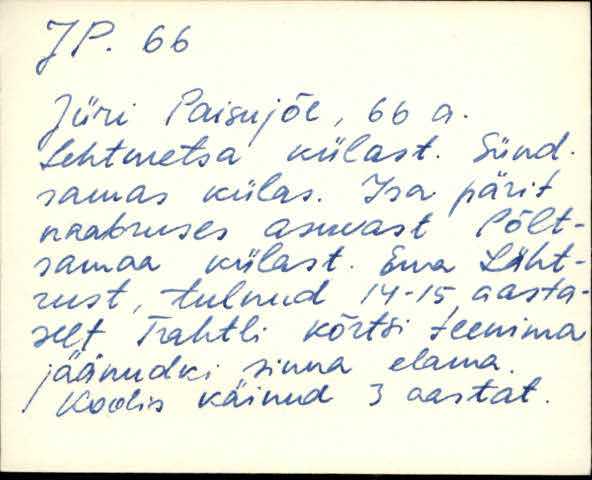 JP. 66
Jüri Paisujõe, 66 a.
Lehtmetsa külast. Sünd.
samas külas. Isa pärit
naabruses asuvast Põlt-
samaa külast. Ema Läht-
rust, tulnud 14-15 aasta-
selt Trahtli kõrtsi teenima
jäänudki sinna elama.
Koolis käinud 3 aastat.